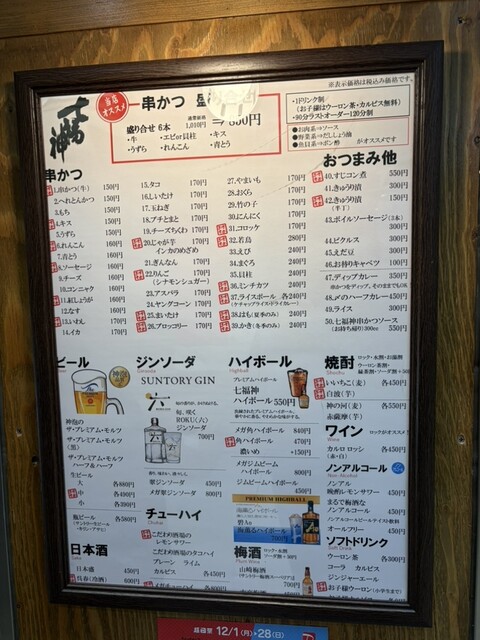 ※表示価格は税込み価格です。
七福神
当店オススメ
串かつ
盛り合せ 6本 通常価格 1,010円
・牛 ・エビor貝柱 ・キス
・うずら ・れんこん ・青とう
・1ドリンク制
(お子様はウーロン茶・カルピス無料)
・90分ラストオーダー120分制
●お肉系⇒ソース
●野菜系⇒だししょう油
●魚貝系⇒ポン酢 がオススメです
串かつ
1.串かつ(牛) 150円
2.へれとんかつ 150円
3.もち 150円
4.キス 150円
5.うずら 150円
6.れんこん 160円
7.青とう 160円
8.ソーセージ 160円
9.チーズ 160円
10.コンニャク 160円
11.紅しょうが 160円
12.なす 160円
13.いわし 170円
14.イカ 170円
15.タコ 170円
16.しいたけ 170円
17.玉ねぎ 170円
18.プチとまと 170円
19.チーズちくわ 170円
20.じゃが芋 170円
インカのめざめ
21.ぎんなん 170円
22.りんご 170円
(シナモンシュガー)
23.アスパラ 170円
24.ヤングコーン 170円
25.まいたけ 170円
26.ブロッコリー 170円
27.やまいも 170円
28.おくら 170円
29.竹の子 170円
30.にんにく 170円
31.コロッケ 170円
32.若鳥 280円
33.えび 240円
34.まぐろ 240円
35.貝柱 240円
36.ミンチカツ 240円
37.ライスボール 各240円
(ケチャップライス・ドライカレー)
38.はも(夏季のみ) 240円
39.かき(冬季のみ) 240円
おつまみ他
40.すじコン煮 550円
41.きゅうり漬 300円
42.きゅうり漬 150円
(半丁)
43.ボイルソーセージ(3本) 300円
44.ピクルス 300円
45.えだ豆 300円
46.お替りキャベツ 100円
47.ディップカレー 350円
串かつをディップ、そのままでもOK
48.〆のハーフカレー 450円
49.ライス 300円
50.七福神串かつソース
(お持ち帰り)300cc 550円
ビール
神泡の
ザ・プレミアム・モルツ
ザ・プレミアム・モルツ
(黒)
ザ・プレミアム・モルツ
ハーフ&ハーフ
生ビール
大 各880円
中 各490円
小 各390円
瓶ビール 各580円
日本酒
日本盛 450円
呉春(冷酒) 600円
ジンソーダ
SUNTORY GIN
六
旬、咲く。
ROKU〈六〉
ジンソーダ
700円
翠ジンソーダ 450円
メガ翠ジンソーダ 800円
チューハイ
こだわり酒場の
レモンサワー
こだわり酒場のタコハイ
プレーン ライム
カルピス 各450円
メガチューハイ 各800円
ハイボール
Highball
プレミアムハイボール
七福神
ハイボール 550円
メガ角ハイボール 840円
角ハイボール 470円
濃いめ +150円
メガジムビーム
ハイボール 800円
ジムビームハイボール
450円
PREMIUM HIGHBALL
碧Ao
梅酒
Plum Wine
ロック・水割・
ソーダ割+30円
山崎梅酒
焼酎
Shochu
ロック・水割・お湯割
ウーロン茶割・
緑茶割・ソーダ割+30円
いいちこ(麦) 各450円
白波(芋)
神の河(麦) 各550円
赤薩摩(芋)
ワイン
Wine
ロックがオススメ
カルロ ロッシ 各450円
(赤・白)
ノンアルコール
Non-Alcohol
ノンアル
晩酌レモンサワー 450円
まるで梅酒な
ノンアル 450円
ノンアルコールビールテイスト飲料
オールフリー 450円
ソフトドリンク
Soft Drink
ウーロン茶 各300円
コーラ カルピス
ジンジャーエール
お子様ウーロン(小学生まで)
超極楽 12/1(月)→28(日)